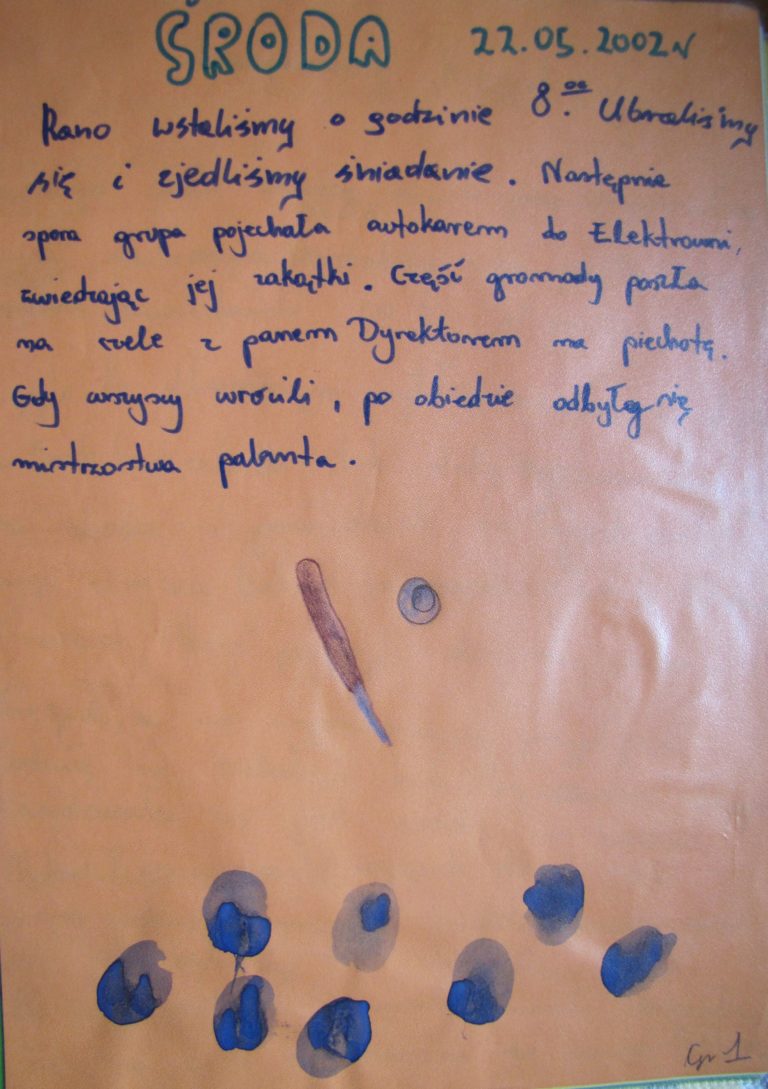 ŚRODA 22.05.2002r
Rano wstaliśmy o godzinie 8.00 Ubraliśmy
się i zjedliśmy śniadanie. Następnie
spora grupa pojechała autokarem do Elektrowni,
zwiedzając jej zakątki. Część gromady poszła
na z panem Dyrektorem na piechotę.
Gdy wszyscy wrócili, po obiedzie odbyły się
mistrzostwa palanta.
Gr 1